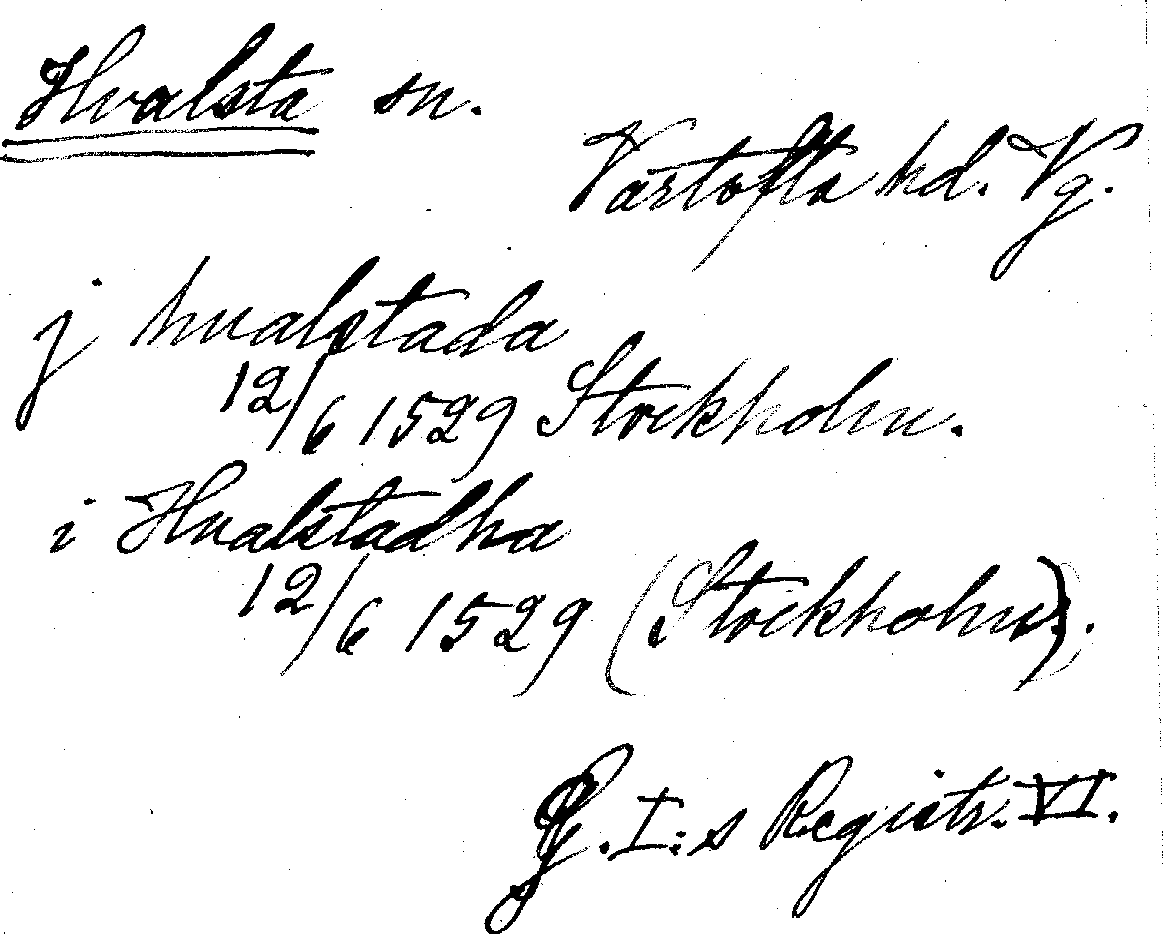 Hvalsta sn.
Vartofta hd. Vg.
j hualstada
12/6 1529 Stockholm.
i Hualstadha
12/6 1529 (Stockholm).
G. I:s Registr. VI.